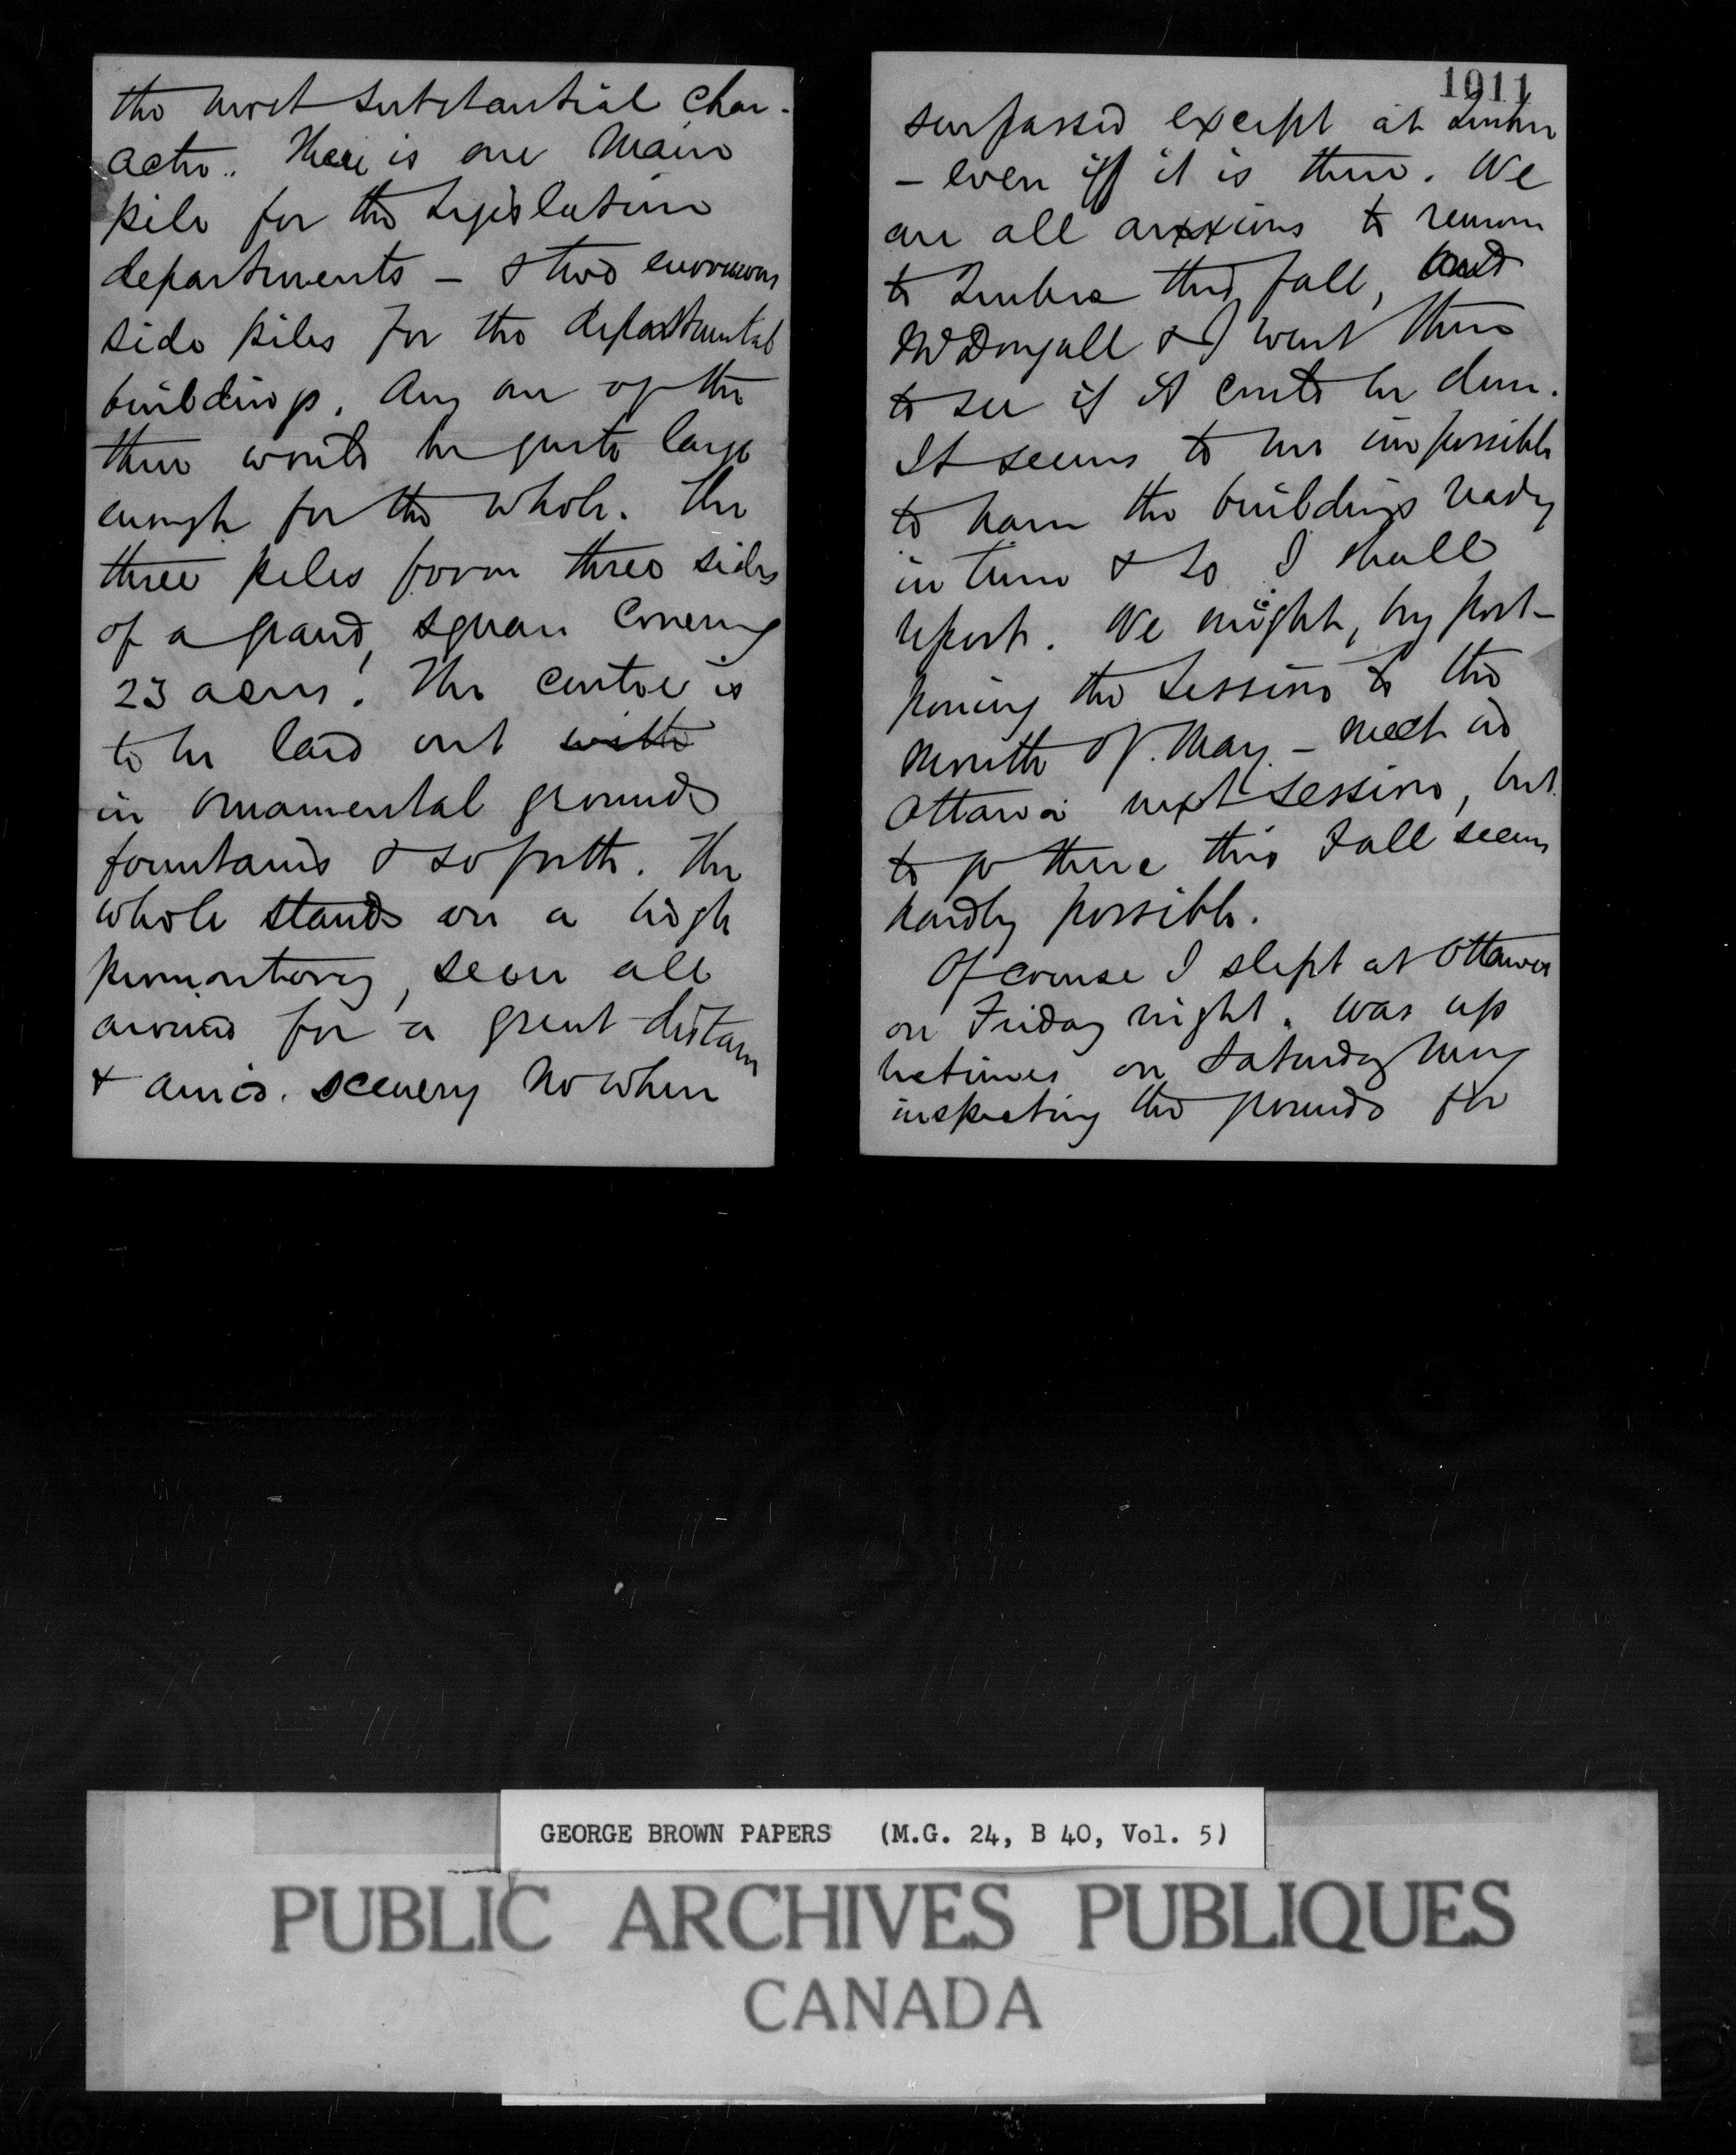 the most substantial char-
acter. There is one main
pile for the Legislative
departments - & two enormous
side piles for the departmental
buildings. Any one of the
three would be quite large
enough for the whole. The
three piles form three sides
of a grand square covering
23 acres! The centre is
to be laid out with
in ornamental grounds
fountains & so forth. The
whole stands on a high
promontory, seen all
around for a great distance
& amid scenery nowhere
1011
surpassed except at Quebec
- even if it is there. We
are all anxious to remove
to Quebec this fall, and
McDougall & I went there
to see if it could be done.
It seems to me impossible
to have the buildings ready
in time & so I shall
report. We might, by post-
poning the Session to the
month of May - meet at
Ottawa next session, but
to go there this Fall seems
hardly possible.
Of course I slept at Ottawa
on Friday night. Was up
betimes on Saturday mng
inspecting the grounds for
GEORGE BROWN PAPERS (M.G. 24, B 40, Vol. 5)
PUBLIC ARCHIVES PUBLIQUES
CANADA